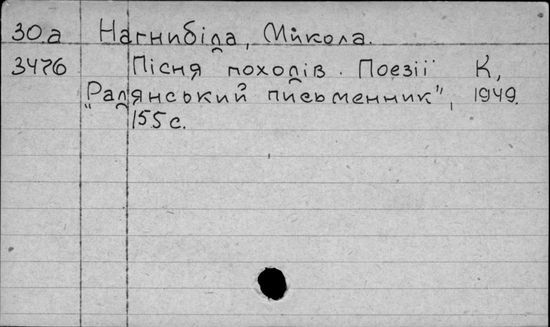 30a Нагнибіда, Микола.
3476 Пісня походів. Поезії К,
"Радянський письменник", 1949.
155 с.